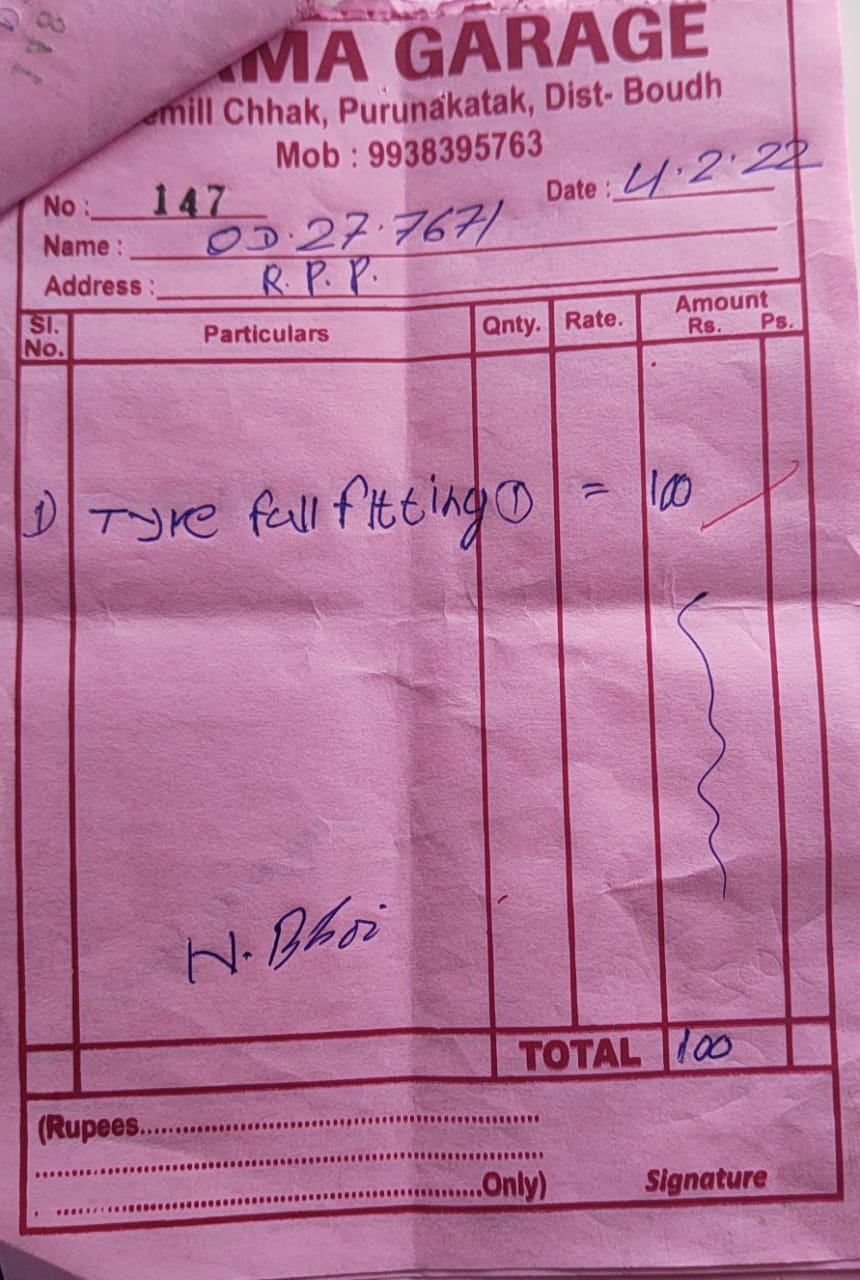 MA GARAGE
mill Chhak, Purunakatak, Dist- Boudh
Mob : 9938395763
No : 147 Date : 4.2.22
Name : OD.27.7671
Address : R.P.P.
Sl. No. Particulars Qnty. Rate. Amount Rs. Ps.
1) Tyre full fitting ① = 100
N. Bhoi
TOTAL 100
(Rupees
Only) Signature